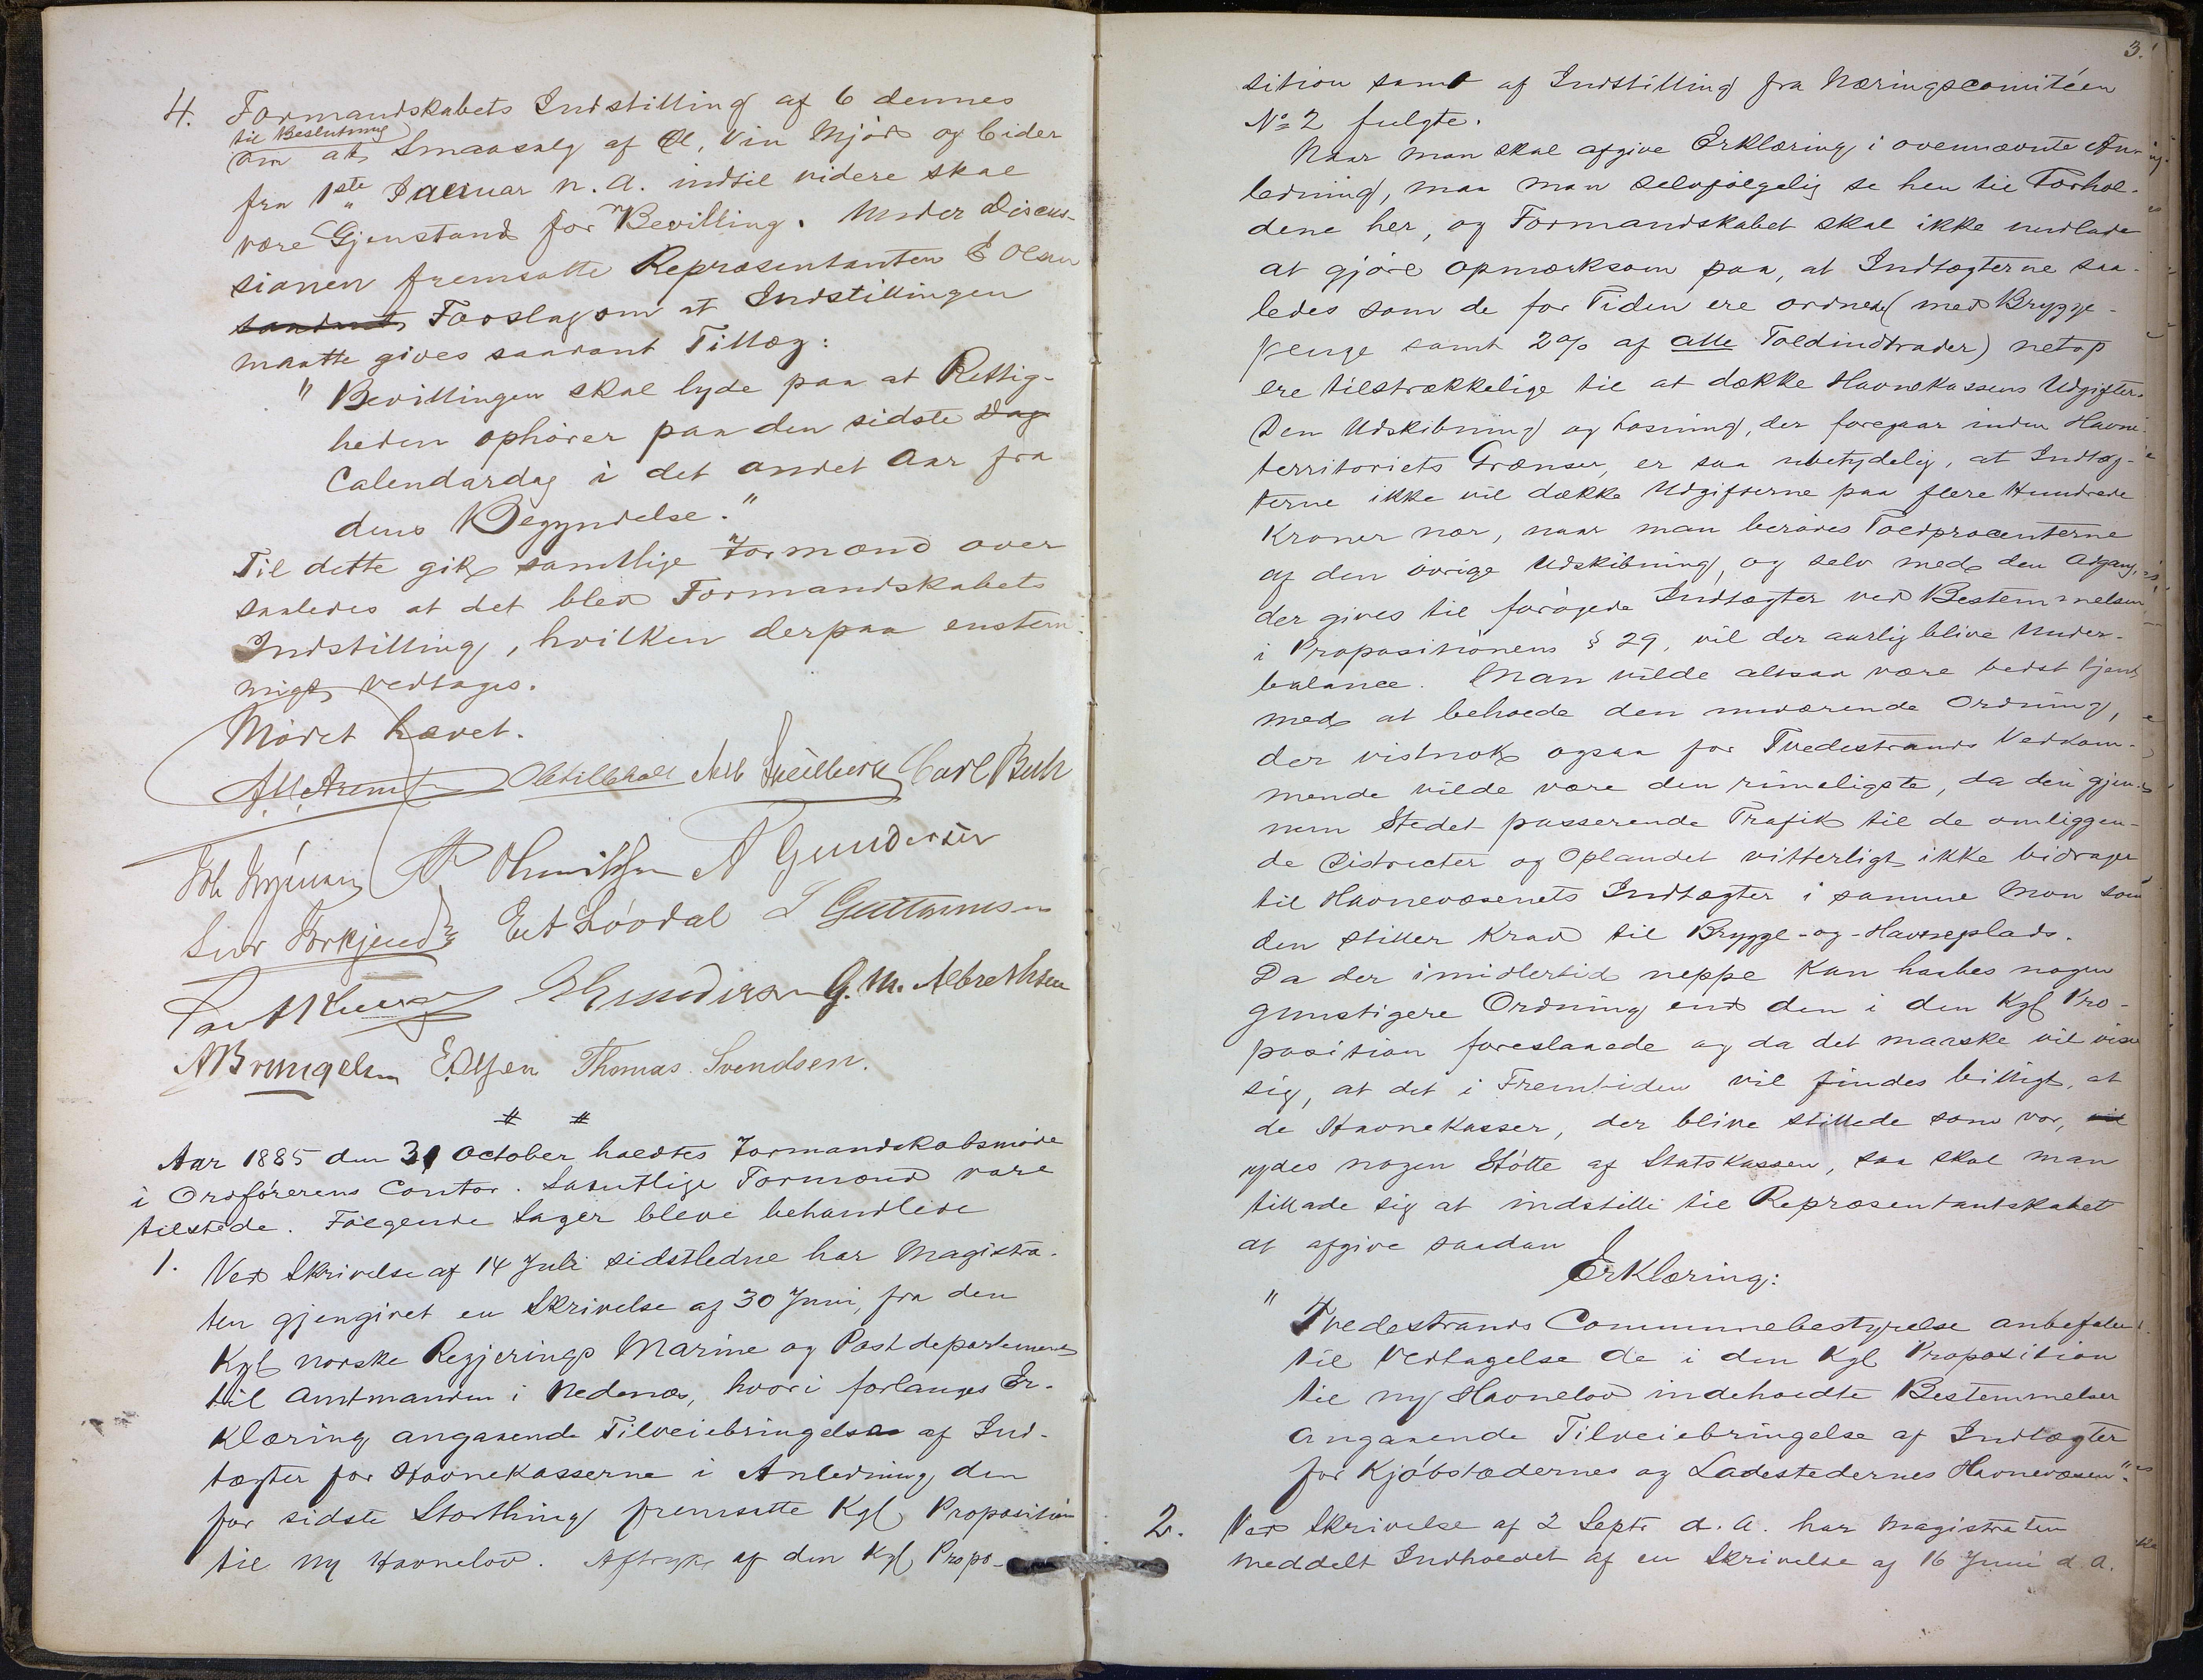 4. Formandskabets Indstilling af 6 dennes
til Beslutning
om at Smaasalg af Øl, Vin Mjød og Cider
fra 1ste Januar n. A. indtil videre skal
være Gjenstand for Bevilling. Under Discus-
sionen fremsatte Repræsentanten E Olsen
Forslag om at Indstillingen
maatte gives saadant Tillæg:
"Bevillingen skal lyde paa at Rettig-
heden ophører paa den sidste Dag
Calendardag i det andet Aar fra
dens Begyndelse."
Til dette gik samtlige Formænd over
saaledes at det blev Formandskabets
Indstilling, hvilken derpaa enstem-
migt vedtages.
Mødet hævet.
Carl Buhr
A Gundersen
Løvdal
G. M. Albrethsen
E. Olsen Thomas Svendsen.
# #
Aar 1885 den 31 October holdtes Formandskabsmøde
i Ordførerens Contor. Samtlige Formænd vare
tilstede. Følgende Sager bleve behandlede
1. Ved Skrivelse af 14 Juli sidstledne har Magistra-
ten gjengivet en Skrivelse af 30 Juni, fra den
Kgl norske Regjerings Marine og Postdepartement
til Amtmanden i Nedenæs, hvori forlanges Er-
klæring angaaende Tilveiebringelse af Ind-
tægter for Havnekasserne i Anledning den
for sidste Storthing fremsatte Kgl Proposition
til ny Havnelov. Aftryk af den Kgl Propo-
3.
sition samt af Indstilling fra Næringscomitéen
No 2 fulgte.
Naar man skal afgive Erklæring i ovennævnte An-
ledning, maa man selvfølgelig se hen til Forhol-
dene her, og Formandskabet skal ikke undlade
at gjøre opmærksom paa, at Indtægterne saa-
ledes som de for Tiden ere ordnede (med Brygge-
penge samt 2% af alle Toldindtrader) netop
ere tilstrækkelige til at dække Havnekassens Udgifter.
Den Udskibning og Losning, der foregaar inden Havne-
territoriets Grænser, er saa ubetydelig, at Indtæg-
terne ikke vil dække Udgifterne paa flere Hundrede
Kroner nær, naar man berøves Toldprocenterne
af den øvrige Udskibning, og selv med den Adgang,
der gives til forøgede Indtægter ved Bestemmelsen
i Propositionens § 29, vil der aarlig blive Under-
balance. Man vilde altsaa være bedst tjent
med at beholde den nuværende Ordning,
der vistnok ogsaa for Tvedestrands Vedkom-
mende vilde være den rimeligste, da den gjen-
nem Stedet passerende Trafik til de omliggen-
de Districter og Oplandet vitterligt ikke bidrager
til Havnevæsenets Indtægter i samme Mon som
den stiller Krav til Brygge- og Havneplads.
Da der imidlertid neppe kan haabes nogen
gunstigere Ordning end den i den Kgl Pro-
position foreslaaede og da det maaske vil vise
sig, at det i Fremtiden vil findes billigt, at
de Havnekasser, der blive stillede som vor, vil
ydes nogen Støtte af Statskassen, saa skal man
tillade sig at indstille til Repræsentantskabet
at afgive saadan
Erklæring:
"Tvedestrands Communebestyrelse anbefaler
til Vedtagelse de i den Kgl Proposition
til ny Havnelov indeholdte Bestemmelser
angaaende Tilveiebringelse af Indtægter
for Kjøbstædernes og Ladestedernes Havnevæsen".
2. Ved Skrivelse af 2 Septr d. A. har Magistraten
meddelt Indholdet af en Skrivelse af 16 Juni d. A.